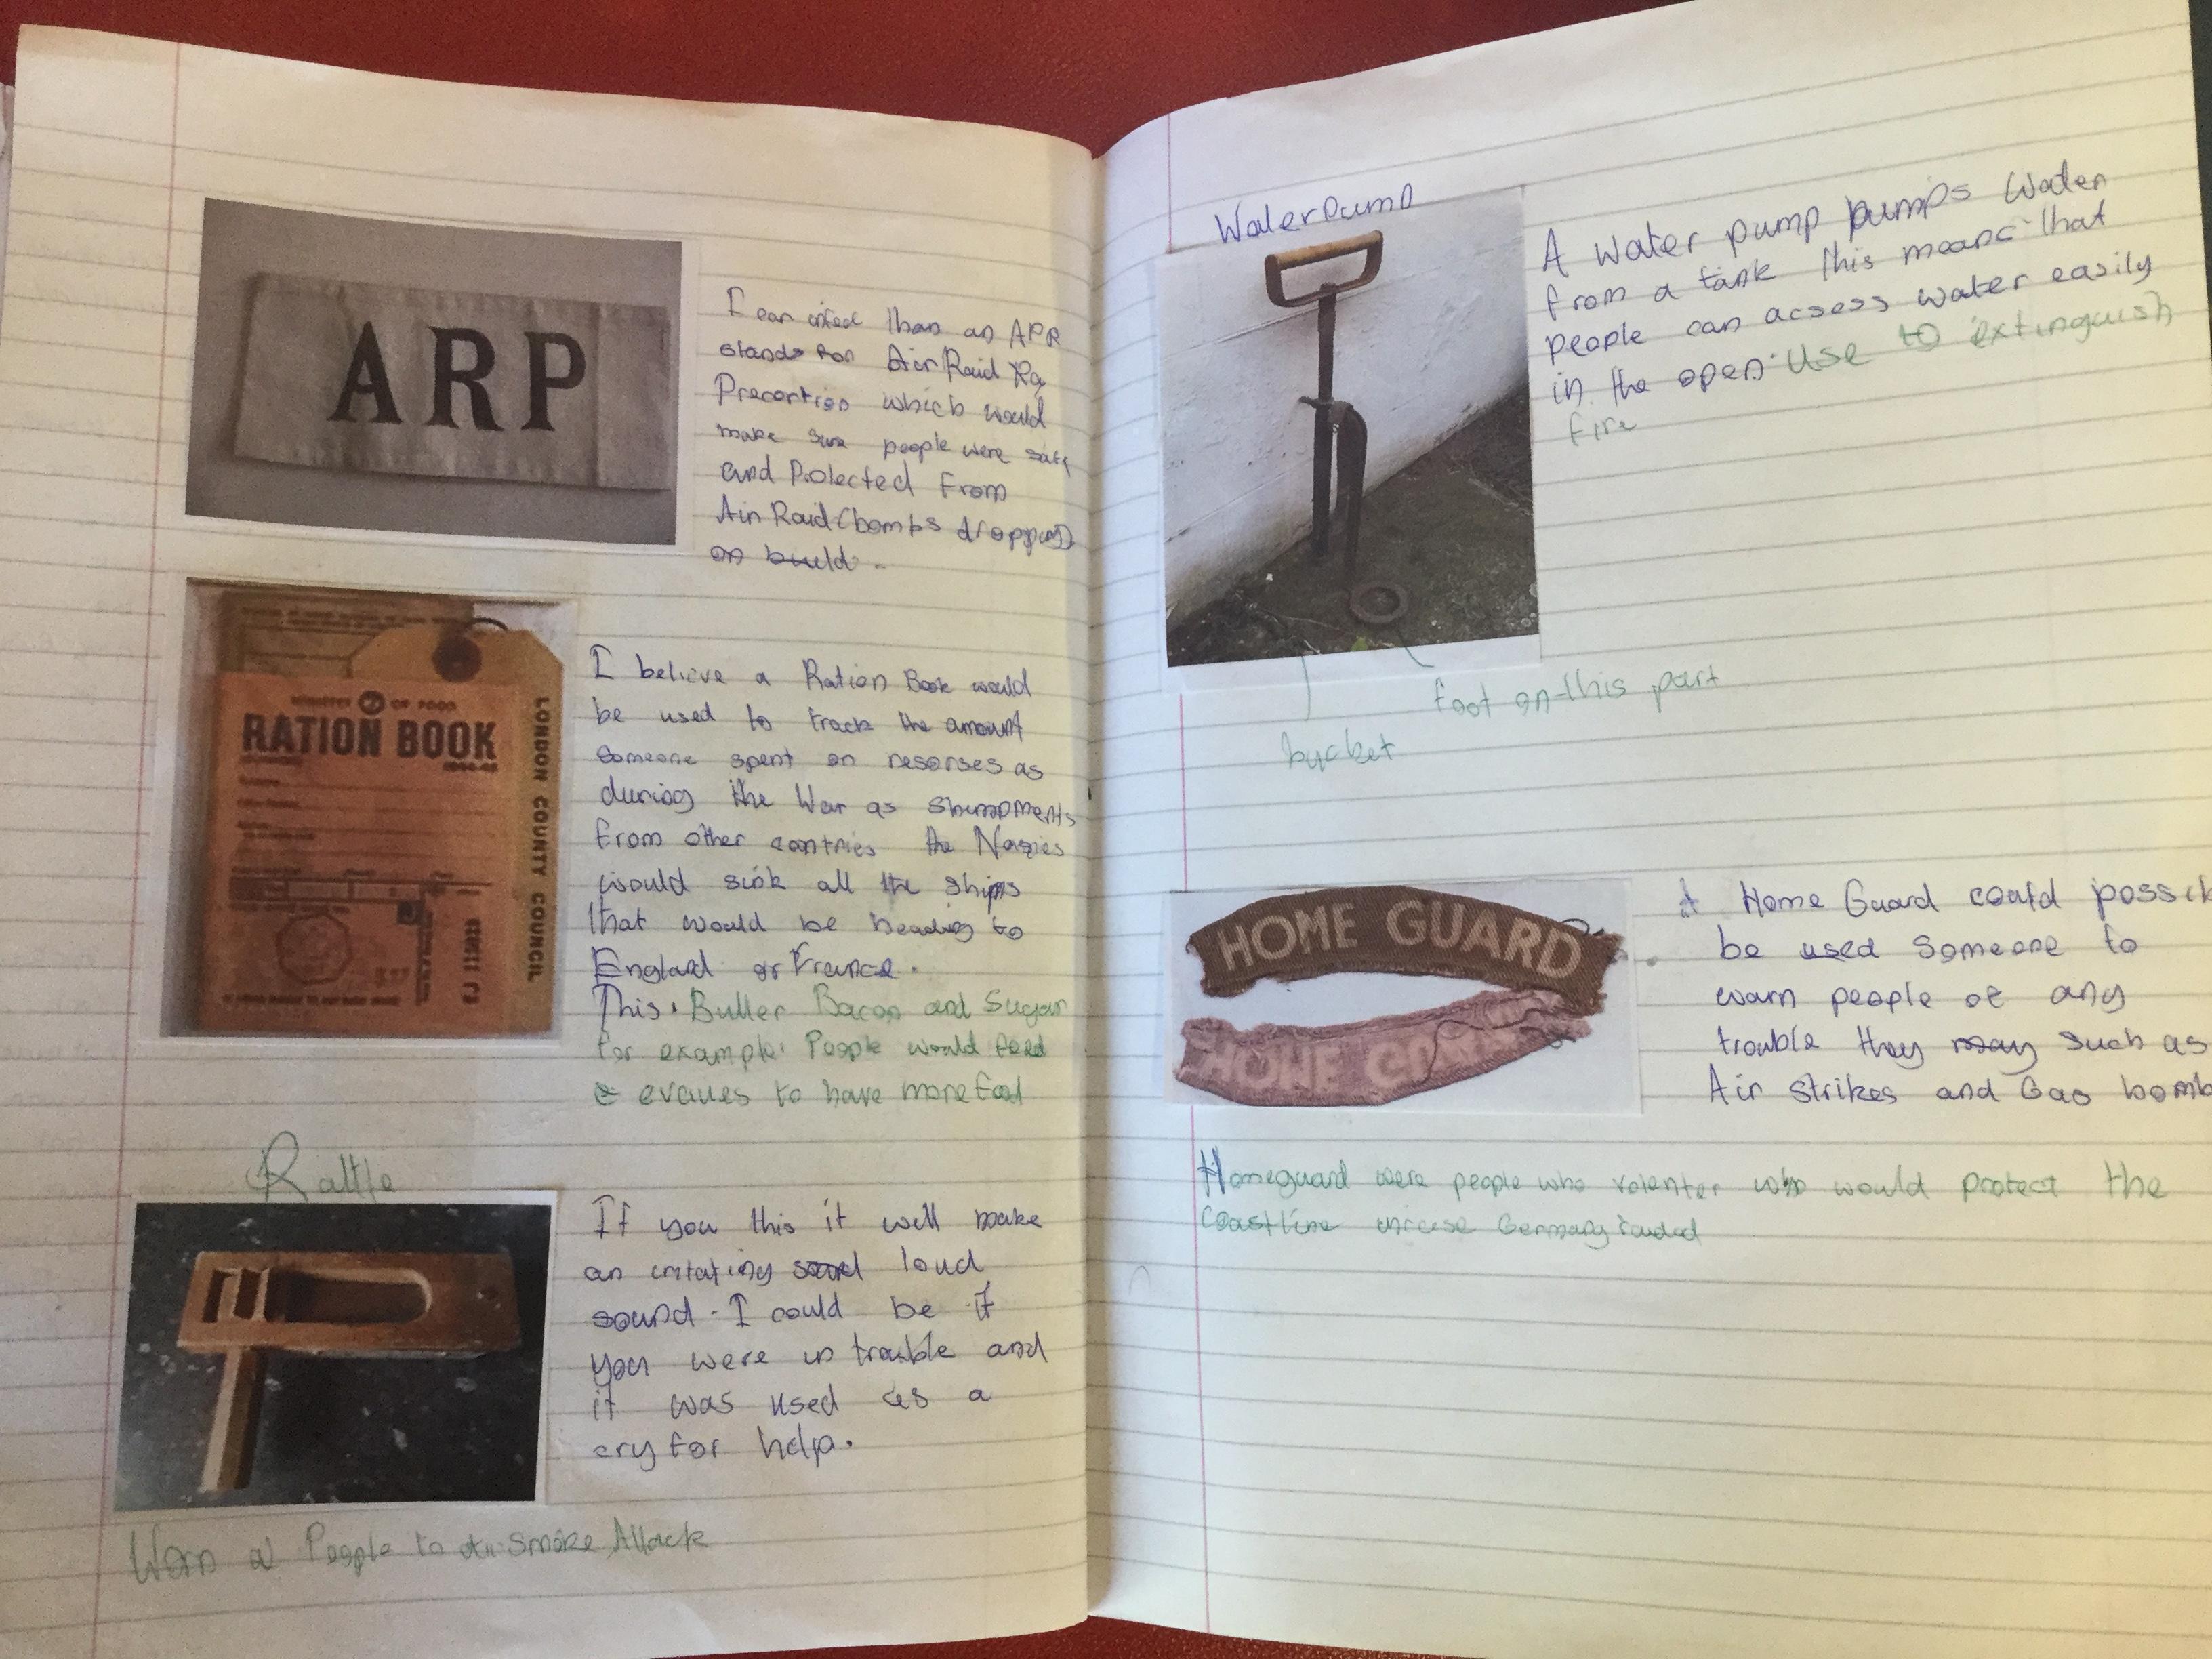 ARP
I can infed than an APR
stands for Air Raid
Precortion which would
make sure people were safe
and Protected From
Air Raid (bombs dropped)
on build.
MINISTRY OF FOOD
RATION BOOK
LONDON COUNTY COUNCIL
I believe a Ration Book would
be used to track the amount
someone spent on resorses as
during the War as
from other contries the Nazies
would sink all the ships
that would be heading to
England or France.
This. Butter Bacon and Sugar
for example. People would feed
evacues to have more food
Rattle
If you this it will make
an irritating loud
sound. I could be if
you were in trouble and
it was used as a
cry for help.
Warn People to Smoke Attack
Water Pump
A Water pump pumps Water
from a tank this means that
people can acsess water easily
in the open. Use to extinguish
fire
foot on this part
bucket
HOME GUARD
HOME
A Home Guard could possib
be used Someone to
warn people of any
trouble they may such as
Air strikes and Gas bomb
Homeguard were people who volenter who would protect the
Coastline incase Germany